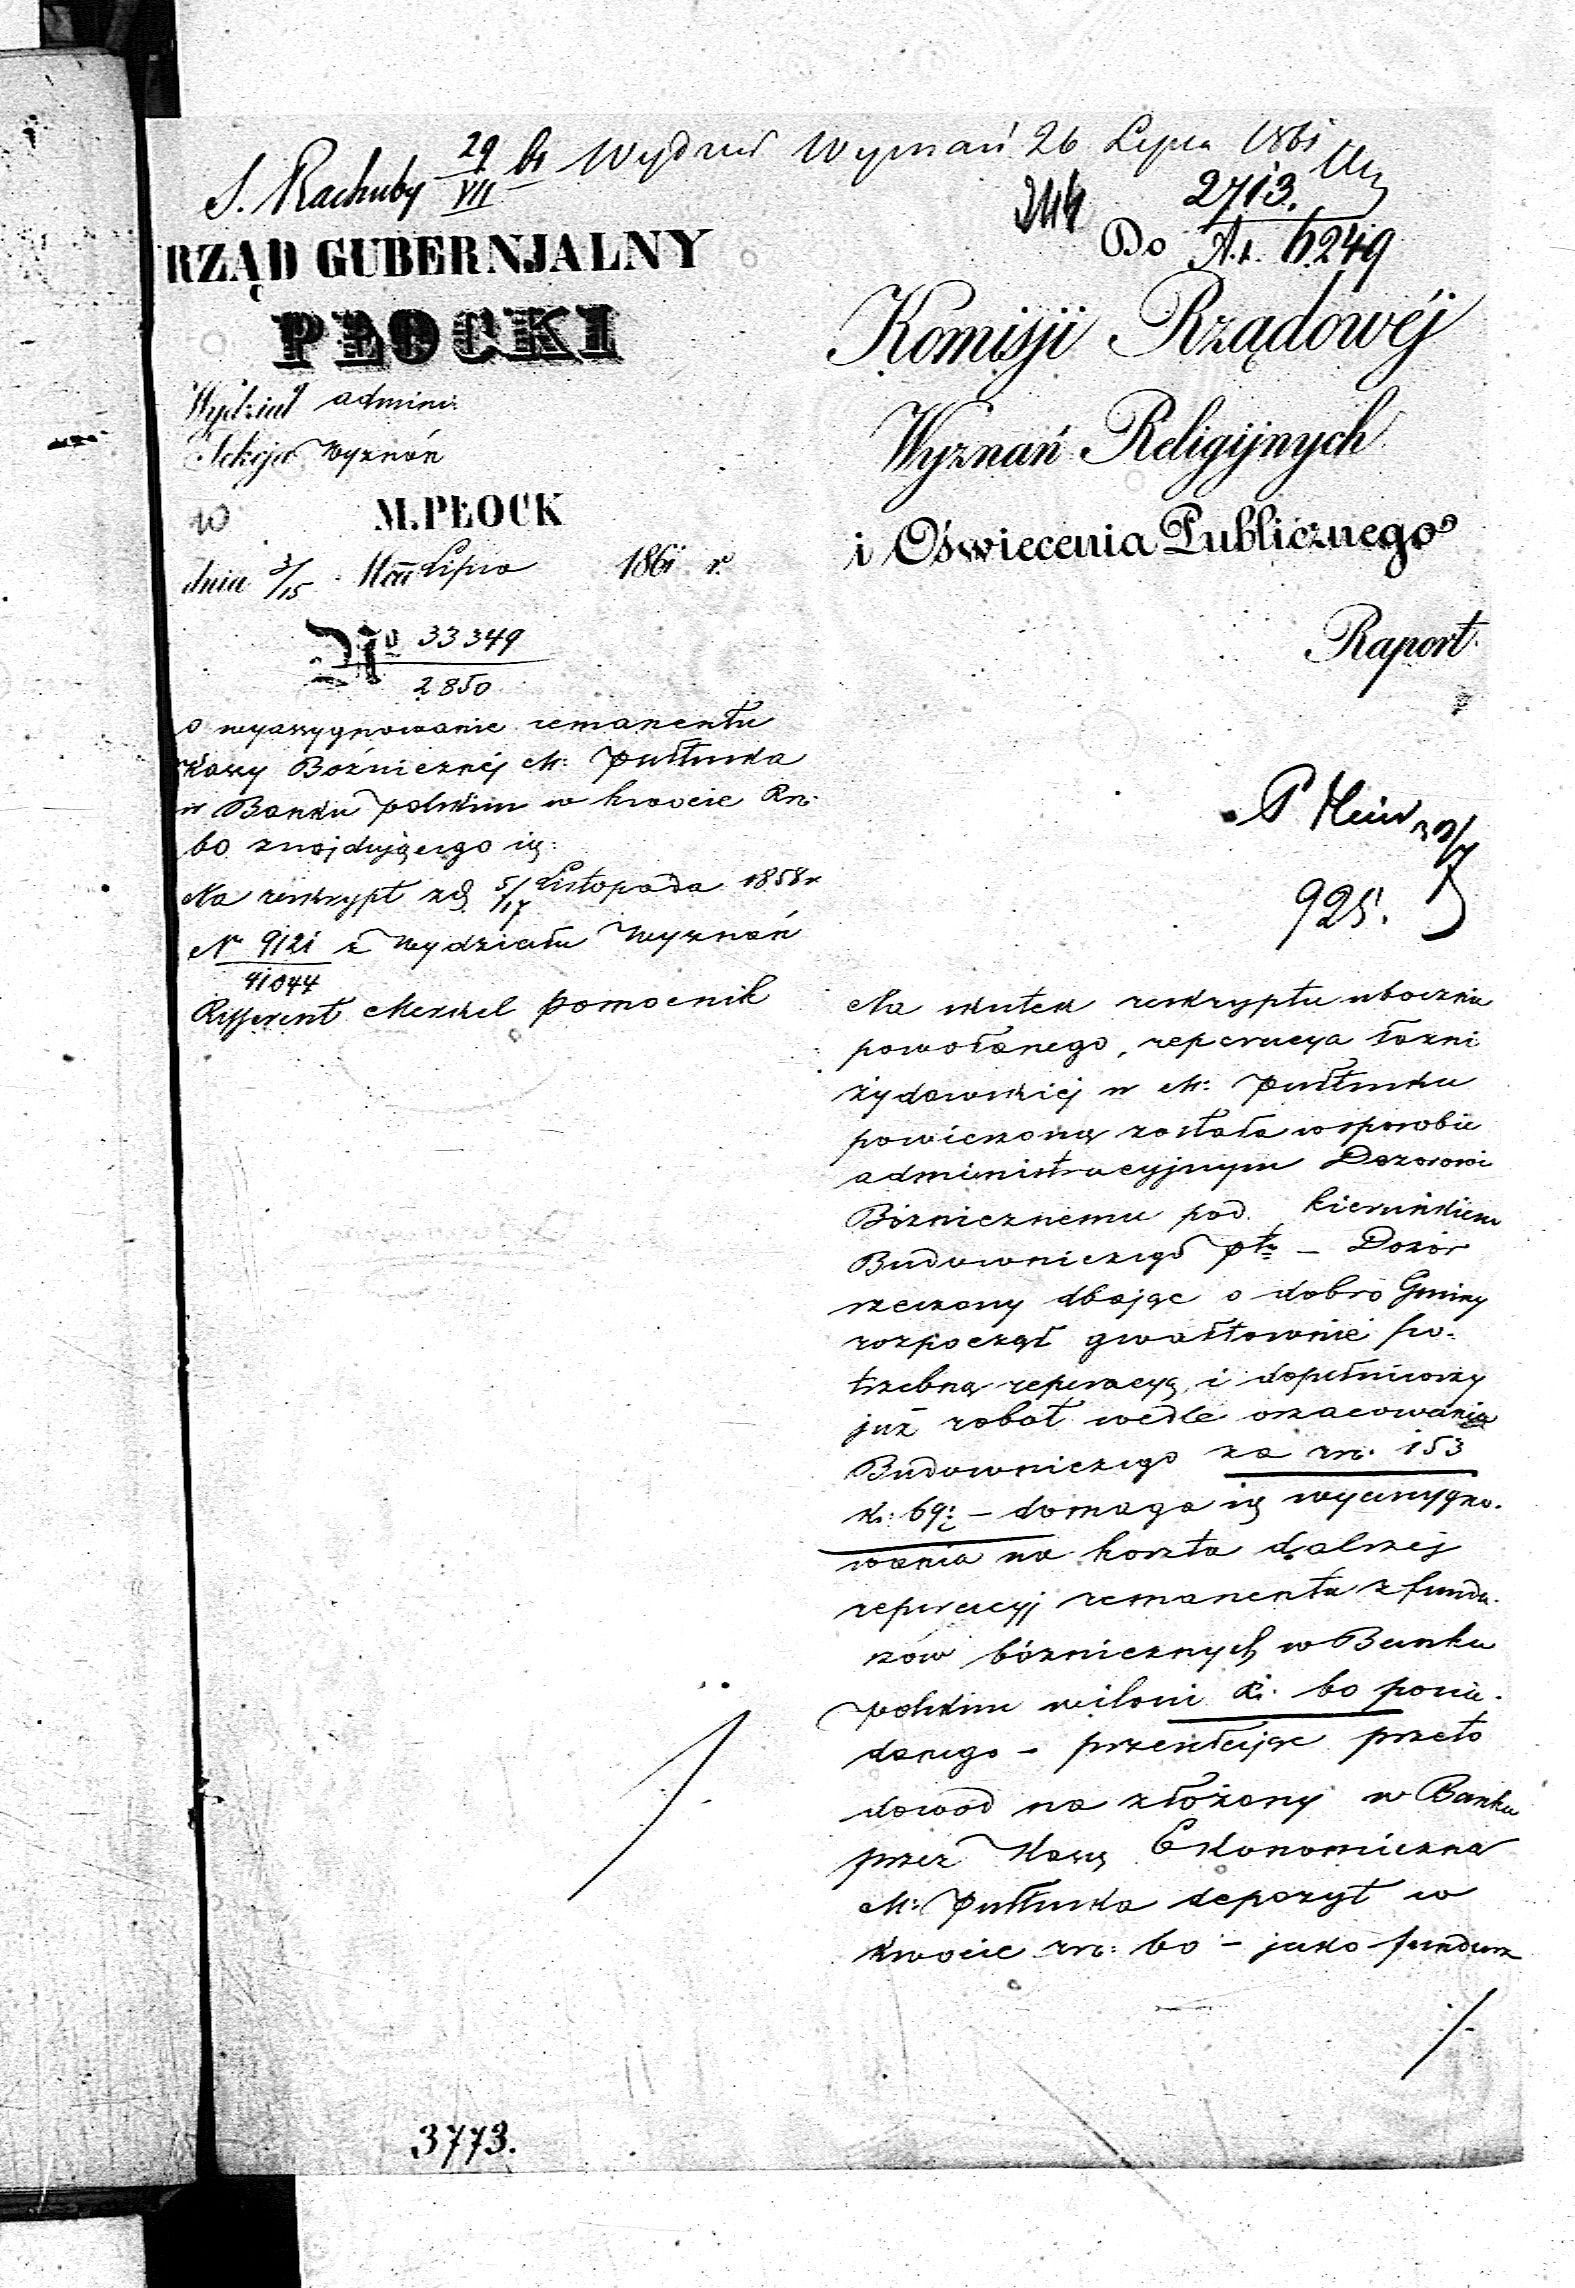 S. Rachuby 29/VII 61 Wydział Wyznań 26 Lipca 1861
244
2713.
Do A.L. 6249
RZĄD GUBERNJALNY
PŁOCKI
Wydział admini:
Sekcja Wyznań
w M. PŁOCK
dnia 3/15 Mca Lipca 1861 r.
No 33349
2850
o wyassygnowanie remanentu
Kassy Bożnicznéj M: Pułtuska
w Banku Polskim w kwocie Rs.
60 znajdującego się:
Na reskrypt z d. 5/17 Listopada 1858 r
N 9121 z Wydziału Wyznań
41044
Refferent Menkel pomocnik
Komisji Rządowéj
Wyznań Religijnych
i Oświecenia Publicznego
Raport
925.
Na skutek reskryptu ubocznie
powołanego, reperacya łaźni
żydowskiej w M: Pułtusku
powierzoną została w sposobie
administracyjnym Dozorowi
Bożnicznemu pod kierunkiem
Budowniczego Ptu – Dozór
rzeczony dbając o dobro Gminy
rozpoczął gwałtownie po-
trzebną reperacyą, i dopełniwszy
już robot wedle oszacowania
Budowniczego za rs. 153
k: 69½ – domaga się wyassygno-
wania na koszta dalszej
reperacyj remanentu z fundu-
szów bóżnicznych w Banku
Polskim w ilości Rs. 60 posia-
danego – przesyłając przeto
dowod na złożony w Banku
przez Kassę Ekonomiczną
M: Pułtuska depozyt w
kwocie rs: 60 – jako fundusz
3773.